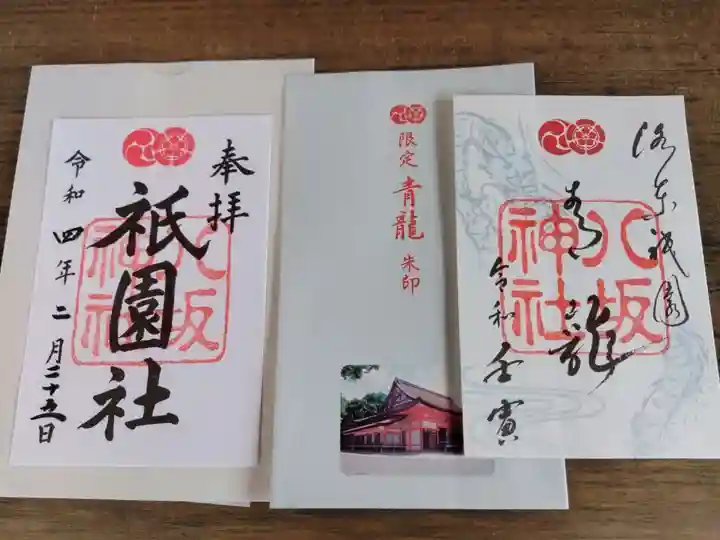 奉拝
祇園社
八坂
神社
令和四年二月二十五日
限定
青龍
朱印
洛東祇園
青龍
八坂
神社
令和壬寅